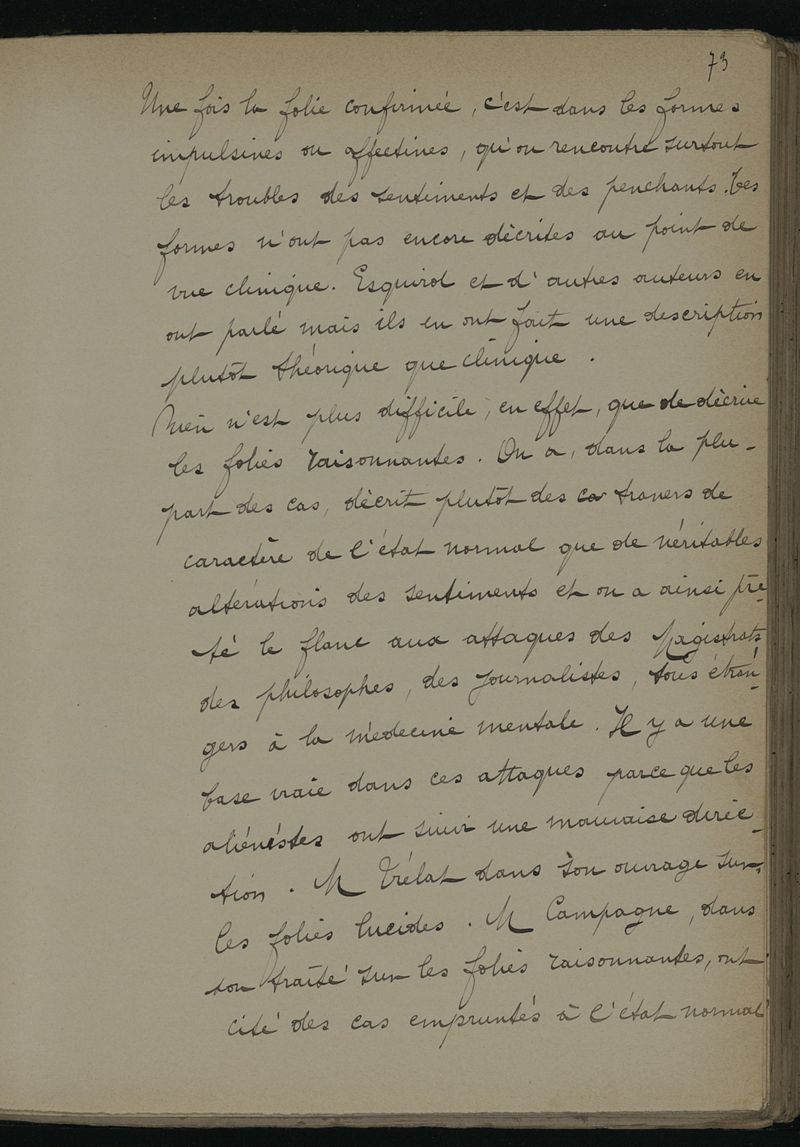 73
Une fois la folie confirmée, c'est dans les formes
impulsives ou affectives, qu'on rencontre surtout
les troubles des sentiments et des penchants. Ces
formes n'ont pas encore décrites au point de
vue clinique. Esquirol et d'autres auteurs en
ont parlé mais ils en ont fait une description
plutôt théorique que clinique.
Rien n'est plus difficile, en effet, que de décrire
les folies raisonnantes. On a, dans la plu-
part des cas, décrit plutôt des ca travers de
caractère de l'état normal que de véritables
altérations des sentiments et on a ainsi prê-
té le flanc aux attaques des Magistrats
des philosophes, des journalistes, tous étran-
gers à la médecine mentale. Il y a une
base vraie dans ces attaques parce que les
aliénistes ont suivi une mauvaise direc-
tion. M Trélat dans son ouvrage sur
les folies lucides. M Campagne, dans
son traité sur les folies raisonnantes, ont
cité des cas empruntés à l'état normal